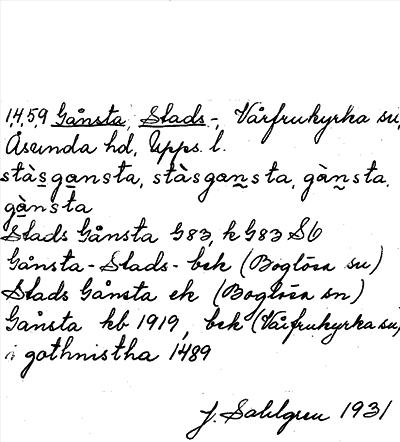 1,4,5,9 Gånsta, Stads-, Vårfrukyrka sn,
Åsunda hd, Upps. l.
stàsgansta, stàsgansta, gànsta,
gànsta
Stads Gånsta G83, k G83 SÖ
Gånsta-Stads- bek (Boglösa sn)
Stads Gånsta ek (Boglösa sn)
Gånsta kb 1919, bek (Vårfrukyrka sn)
i gothnistha 1489
J. Sahlgren 1931